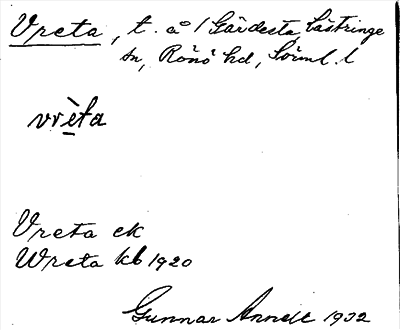 Vreta, t. å / Gärdesta, Lästringe
sn, Rönö hd, Sörml. l
vrèta
Vreta ek
Wreta kb 1920
Gunnar Annell 1932